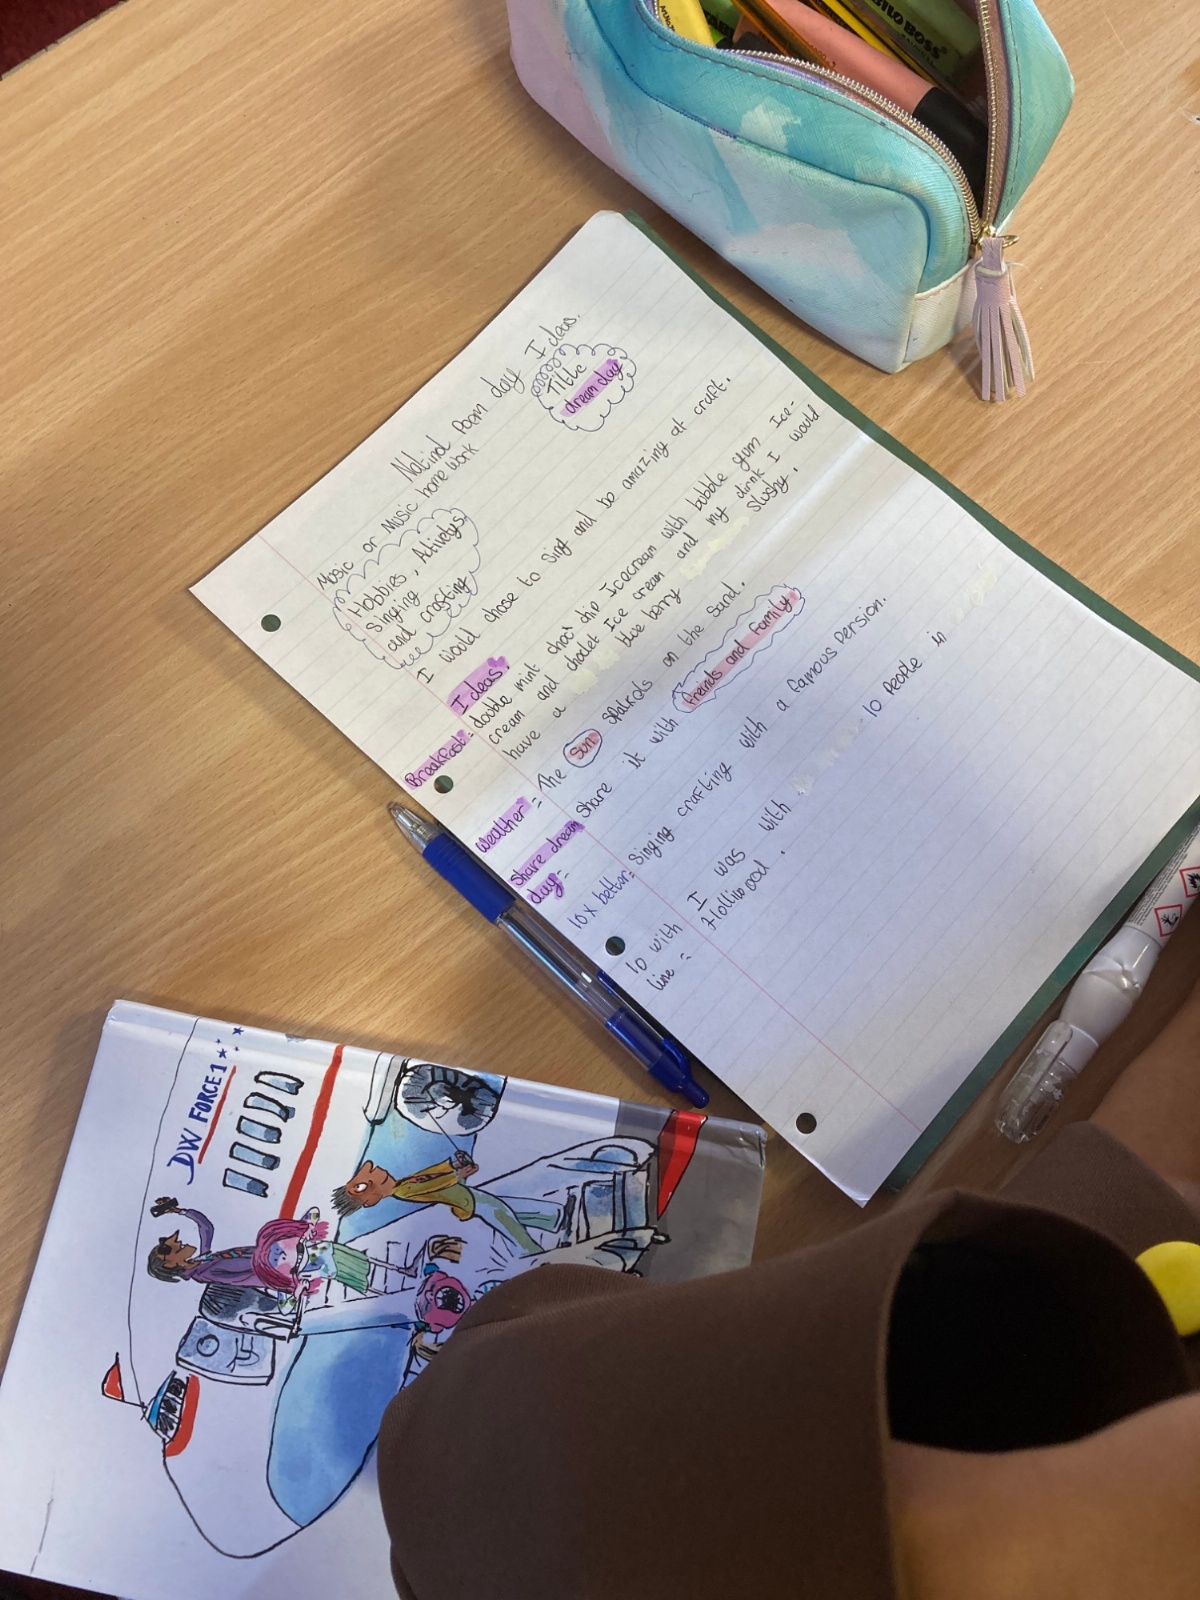 BOSS
Natinal Poem day Ideas.
Music or Music homework
Title
dream day
Hobbies, Activitys
Singing
and crafting
I would chose to sing and be amazing at craft.
Ideas.
Breakfast = double mint choc chip Icecream with bubble gum Ice-
cream and choclet Ice cream and my drink I would
have a blue berry slushy.
Weather = The sun spalrols on the sand.
Share dream Share it with freinds and family
day =
10x better = Singing crafting with a famous Persion.
10 with I was with 10 People in
line = Holliwood.
DW FORCE 1